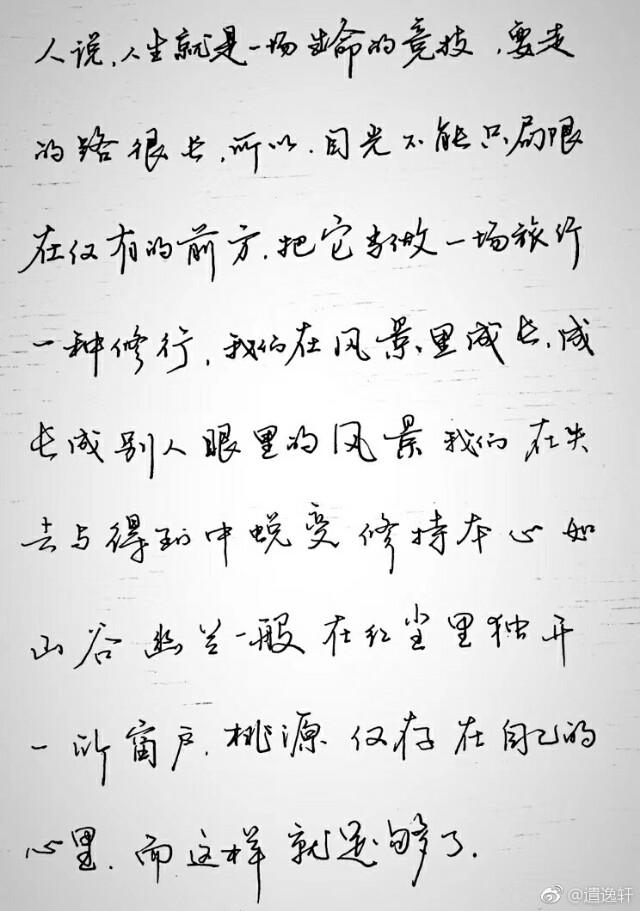 人说,人生就是一场生命的竞技,要走
的路很长,所以,目光不能只局限
在仅有的前方.把它当做一场旅行
一种修行,我们在风景里成长,成
长成别人眼里的风景我们在失
去与得到中蜕变修持本心如
山谷幽兰一般在红尘里独开
一所窗户.桃源仅存在自己的
心里.而这样就足够了.
@遣逸轩